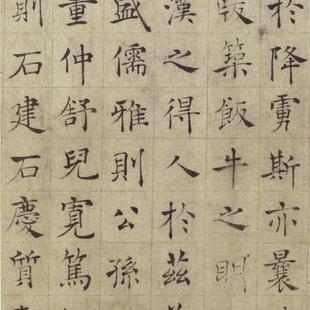 於降虜斯亦曩
版築飯牛之明
漢之得人於茲
盛儒雅則公孫
董仲舒兒寬篤
則石建石慶質